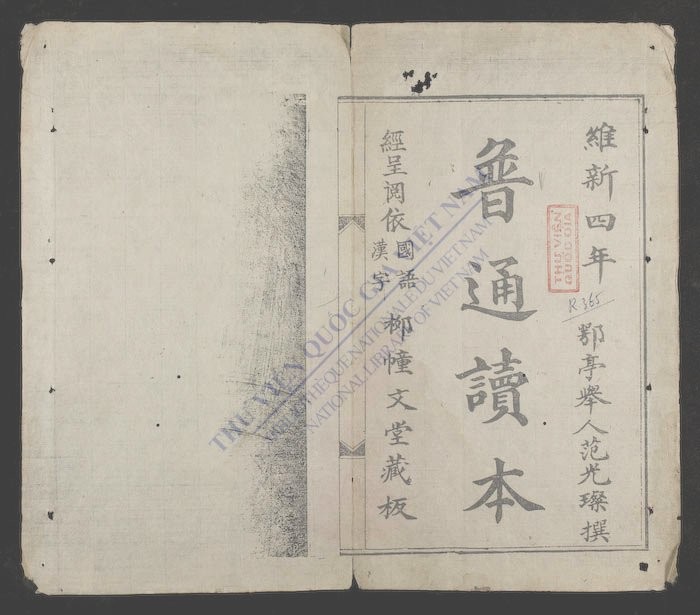 維新四年
鄂亭舉人范光璨撰
普通讀本
經呈阅依
國語
漢字
柳幢文堂藏板
THƯ VIỆN
QUỐC GIA
R.365
THƯ VIỆN QUỐC GIA VIỆT NAM
BIBLIOTHÈQUE NATIONALE DU VIETNAM
NATIONAL LIBRARY OF VIETNAM